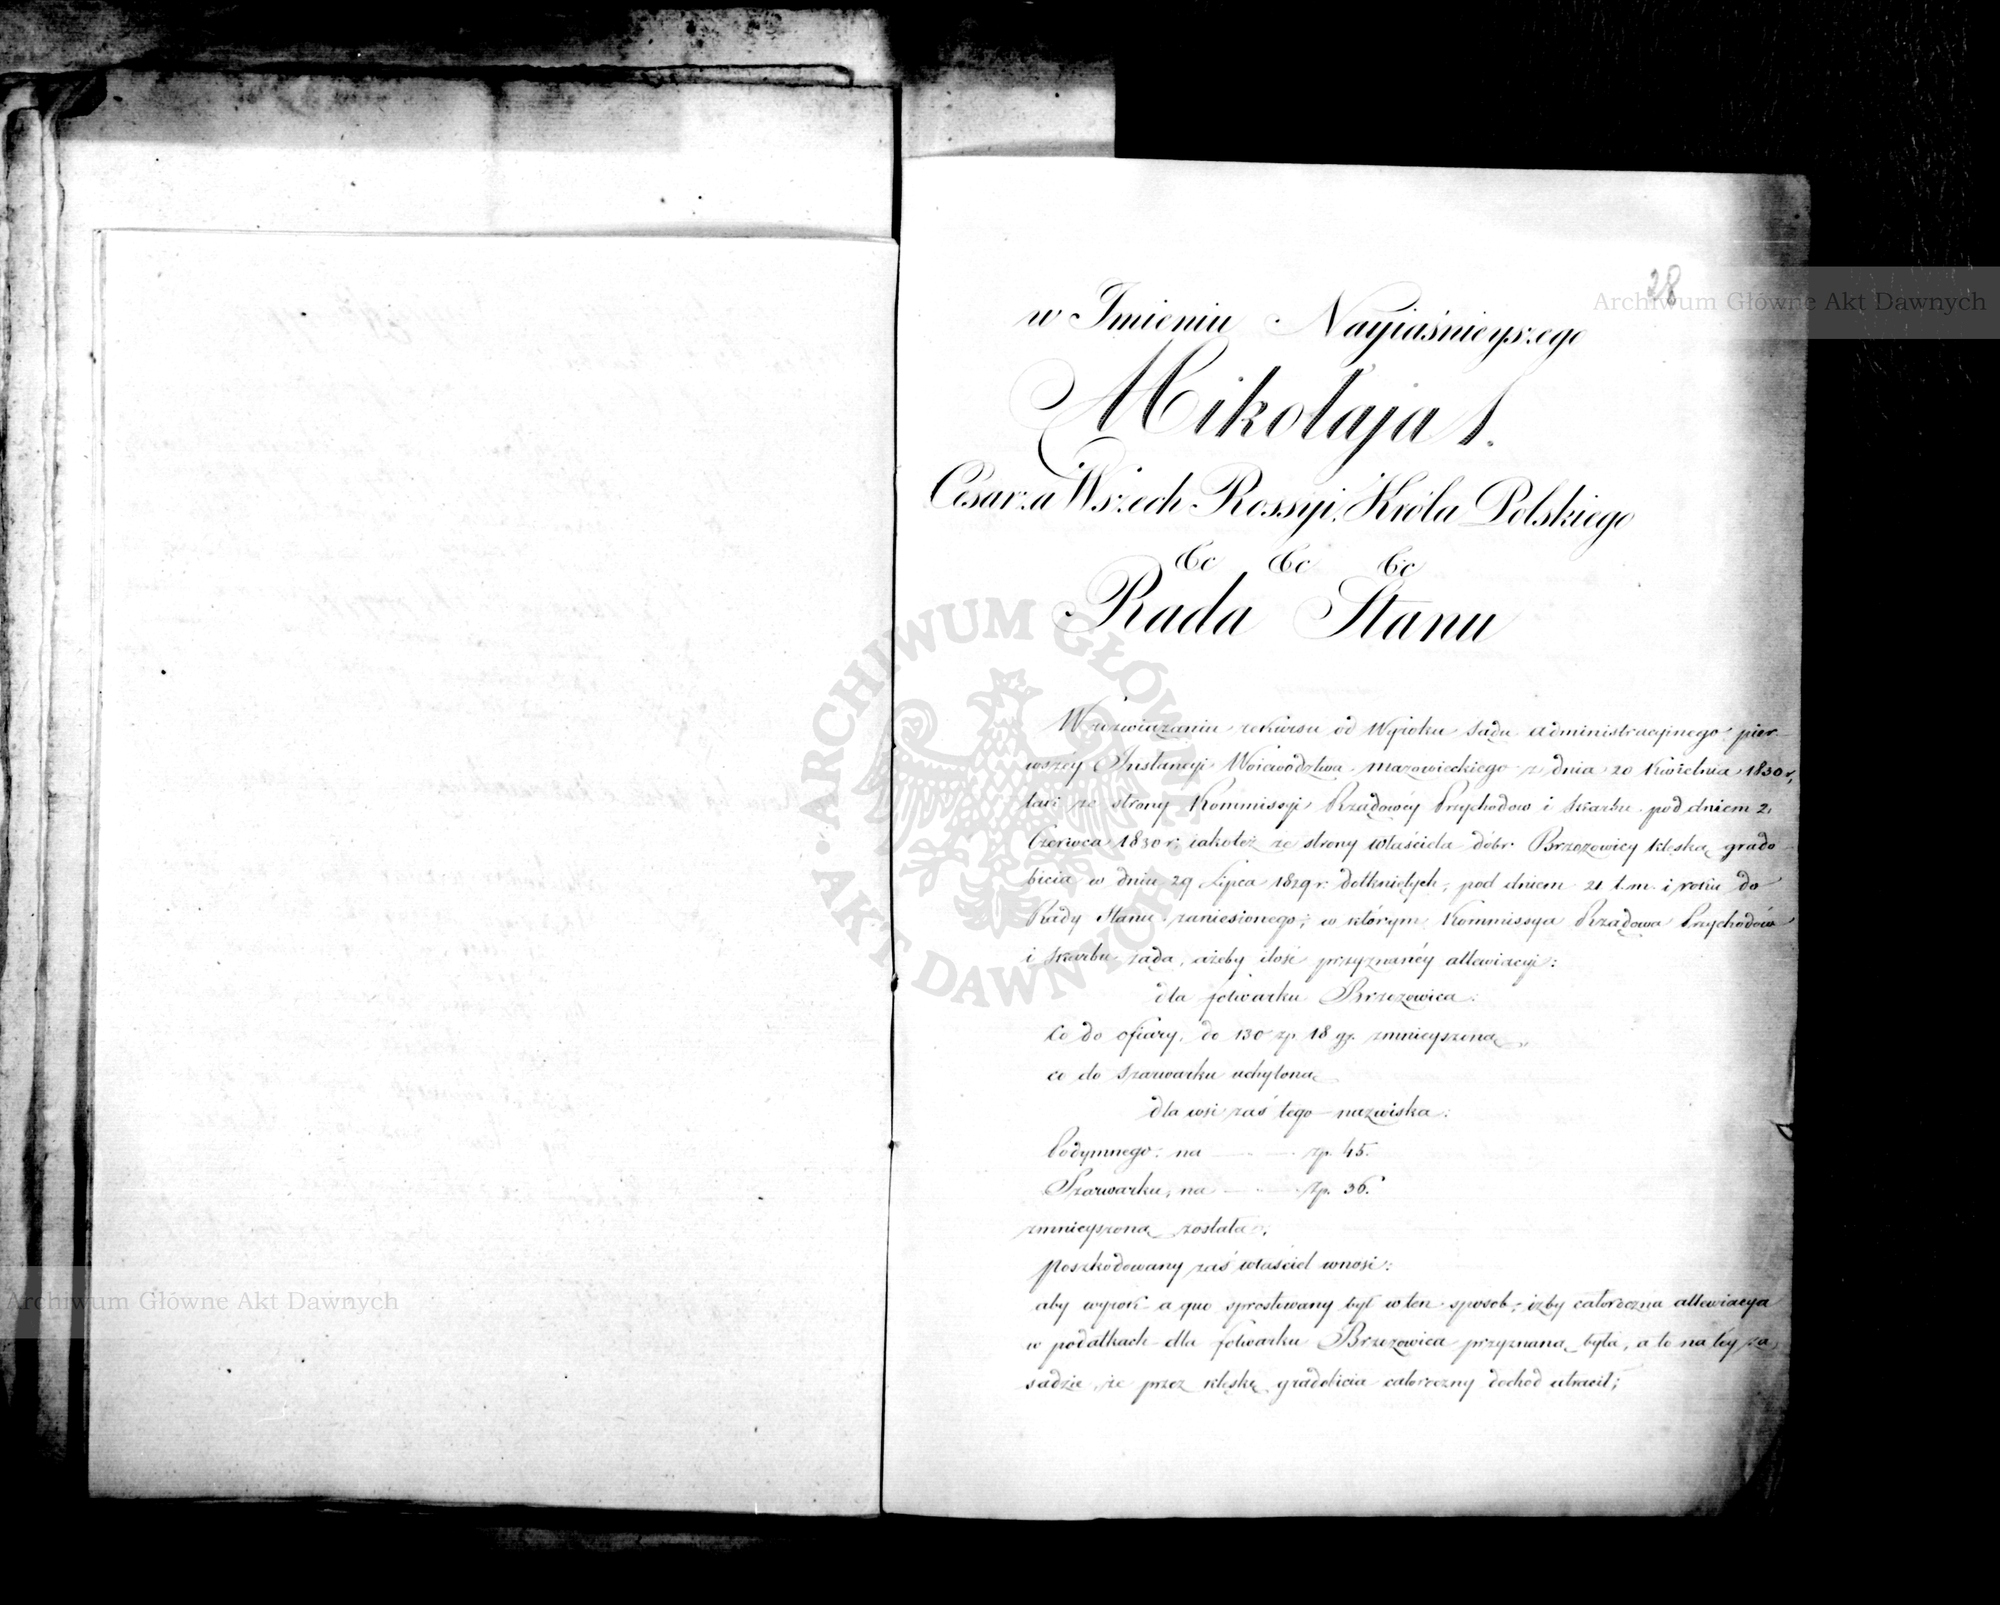 28
w Imieniu Nayiaśnieyszego
Mikołaja I.
Cesarza Wszech Rossyi, Króla Polskiego
&c &c &c
Rada Stanu
W rozwiązaniu rekursu od Wyroku Sądu Administracyinego pier-
wszéy Instancyi Woiewództwa Mazowieckiego z dnia 20 Kwietnia 1830 r,
tak ze strony Kommissyi Rządowéy Przychodow i Skarbu pod dniem 2,
Czerwca 1830 r. iakoteż ze strony właściela dóbr Brzozowicy klęską grado-
bicia w dniu 29 Lipca 1829 r. dotkniętych, pod dniem 21 t.m. i roku do
Rady Stanu zaniesionego; w którym Kommissya Rządowa Przychodów
i Skarbu żąda, ażeby ilość przyznanéy allewiacyi:
dla folwarku Brzezowica:
co do ofiary, do 130 zp. 18 gr. zmnieyszoną,
co do Szarwarku uchyloną
dla wsi zaś tego nazwiska:
Podymnego: na zp. 45.
Szarwarku, na zp. 36.
zmnieyszoną została;
Poszkodowany zaś właściel wnosi:
aby wyrok a quo sprostowany był w ten sposób, iżby całoroczna allewiacya
w podatkach dla folwarku Brzezowica przyznaną była, a to na téy za-
sadzie, że przez klęskę gradobicia całoroczny dochod utracił;
Archiwum Główne Akt Dawnych
Archiwum Główne Akt Dawnych
ARCHIWUM GŁÓWNE AKT DAWNYCH